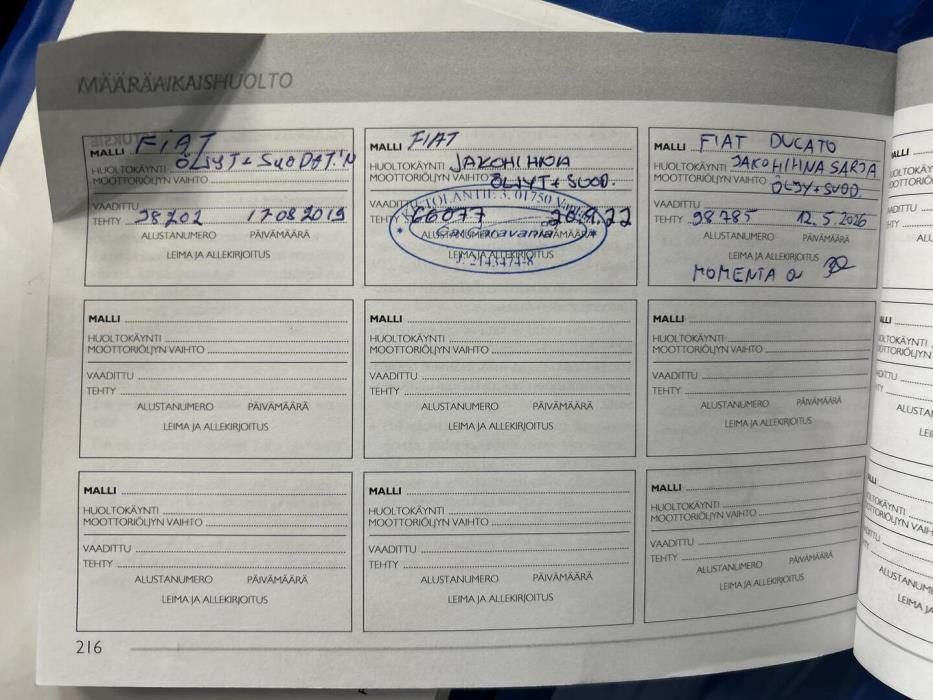 MÄÄRÄAIKAISHUOLTO
MALLI FIAT
HUOLTOKÄYNTI ÖLJYT + SUODAT.'N
MOOTTORIÖLJYN VAIHTO
VAADITTU
TEHTY 38202 17082019
ALUSTANUMERO PÄIVÄMÄÄRÄ
LEIMA JA ALLEKIRJOITUS
MALLI FIAT
HUOLTOKÄYNTI JAKOHIHNA
MOOTTORIÖLJYN VAIHTO ÖLJYT + SUOD.
VAADITTU
TEHTY 66077 28.9.22
ALUSTANUMERO PÄIVÄMÄÄRÄ
LEIMA JA ALLEKIRJOITUS
3, 01750
Y: 2143474-8
MALLI FIAT DUCATO
HUOLTOKÄYNTI JAKOHIHNA SARJA
MOOTTORIÖLJYN VAIHTO ÖLJY + SUOD.
VAADITTU
TEHTY 98785 12.5.2026
ALUSTANUMERO PÄIVÄMÄÄRÄ
LEIMA JA ALLEKIRJOITUS
MOMENTA
MALLI
HUOLTOKÄYNTI
MOOTTORIÖLJYN VAIHTO
VAADITTU
TEHTY
ALUSTANUMERO PÄIVÄMÄÄRÄ
LEIMA JA ALLEKIRJOITUS
MALLI
HUOLTOKÄYNTI
MOOTTORIÖLJYN VAIHTO
VAADITTU
TEHTY
ALUSTANUMERO PÄIVÄMÄÄRÄ
LEIMA JA ALLEKIRJOITUS
MALLI
HUOLTOKÄYNTI
MOOTTORIÖLJYN VAIHTO
VAADITTU
TEHTY
ALUSTANUMERO PÄIVÄMÄÄRÄ
LEIMA JA ALLEKIRJOITUS
MALLI
HUOLTOKÄYNTI
MOOTTORIÖLJYN VAIHTO
VAADITTU
TEHTY
ALUSTANUMERO PÄIVÄMÄÄRÄ
LEIMA JA ALLEKIRJOITUS
MALLI
HUOLTOKÄYNTI
MOOTTORIÖLJYN VAIHTO
VAADITTU
TEHTY
ALUSTANUMERO PÄIVÄMÄÄRÄ
LEIMA JA ALLEKIRJOITUS
MALLI
HUOLTOKÄYNTI
MOOTTORIÖLJYN VAIHTO
VAADITTU
TEHTY
ALUSTANUMERO PÄIVÄMÄÄRÄ
LEIMA JA ALLEKIRJOITUS
216